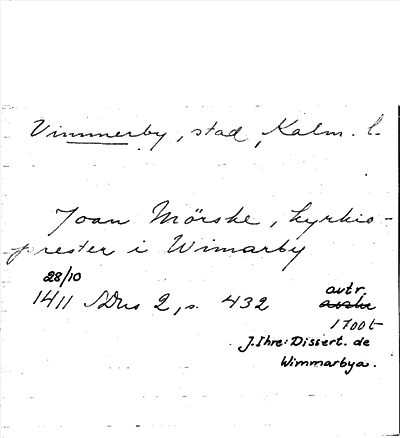 Vimmerby, stad, Kalm. l.
Joan Mörske, kyrkio-
prester i Wimarby
28/10
1411 SDns 2, s. 432 avtr.
1700t
J. Ihre: Dissert. de
Wimmarbya.